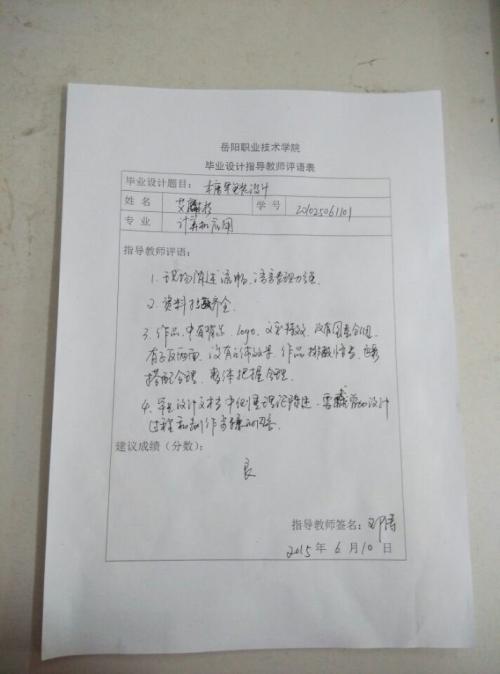 岳阳职业技术学院
毕业设计指导教师评语表
毕业设计题目： 包装设计
姓 名 艾 学 号 201025061101
专 业 计算机应用
指导教师评语：
1. 现场陈述流畅、语言表达力强
2. 资料 齐全
3. 作品中有 logo、文字 没有
有正反两面、没有立体效果、作品
搭配合理、整体把握合理
4. 毕业设计文档中侧重理论陈述、需 设计
过程和制作步骤的内容
建议成绩（分数）：
良
指导教师签名：邓
2015 年 6 月 10 日